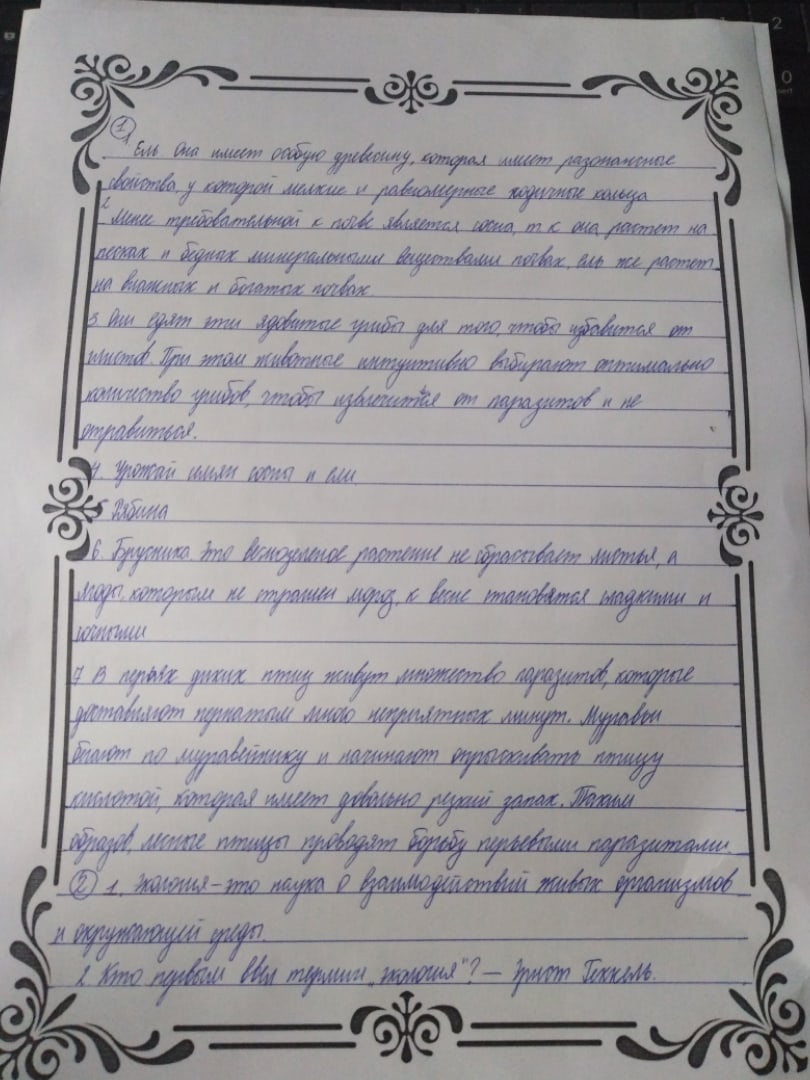 ①
1 Ель. Она имеет особую древесину, которая имеет разонансные
свойства, у которой мелкие и равномерные годичные кольца
2 Менее требовательной к почве является сосна, т.к она растет на
песках и бедных минеральными веществами почвах, ель же растет
на влажных и богатых почвах
3. Они едят эти ядовитые грибы для того, чтобы избавится от
глистов. При этом животные интуитивно выбирают оптимально
количество грибов, чтобы от паразитов и не
отравиться.
4. Урожай семян сосны и ели
5 Рябина
6. Брусника. Это вечнозеленое растение не сбрасывает листья, а
ягоды, которым не страшен мороз, к весне становятся сладкими и
сочными
7 В перьях диких птиц живут множество паразитов, которые
доставляют пернатым много неприятных минут. Муравьи
бегают по муравейнику и начинают опрыскивать птицу
кислотой, которая имеет довольно резкий запах. Таким
образов, лесные птицы проводят борьбу перьевыми паразитами
② 1. Экология – это наука о взаимодействий живых организмов
и окружающей среды.
2. Кто первым ввел термин „экология"? – Эрнст Геккель.
2
0